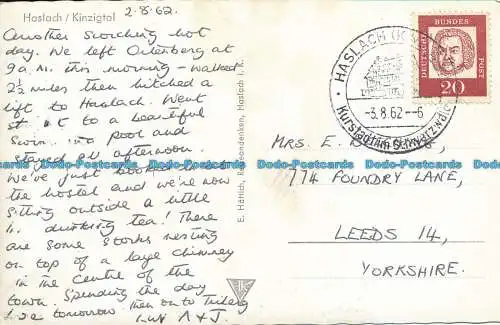 Haslach / Kinzigtal
2.8.62.
Another scorching hot
day. We left Ortenberg at
9 a.m. this morning - walked
2½ miles then hitched a
lift to Haslach. Went
to a beautiful
swim. pool and
stayed all afternoon.
We've just booked
the hostel and we're now
sitting outside a little
drinking tea! There
are some storks nesting
on top of a large chimney
in the centre of the
town. Spending the day
here tomorrow then on to
Love A & J.
E. Hättich, Reiseandenken, Haslach i. K.
HASLACH (KINZIGTAL)
-3.8.62--6
Kurstadt im Schwarzwald
DEUTSCHE BUNDESPOST
20
MRS. E.
774 FOUNDRY LANE,
LEEDS 14,
YORKSHIRE.
Dodo-Postcards Dodo-Postcards Dodo-Postcards Dodo-Postcards